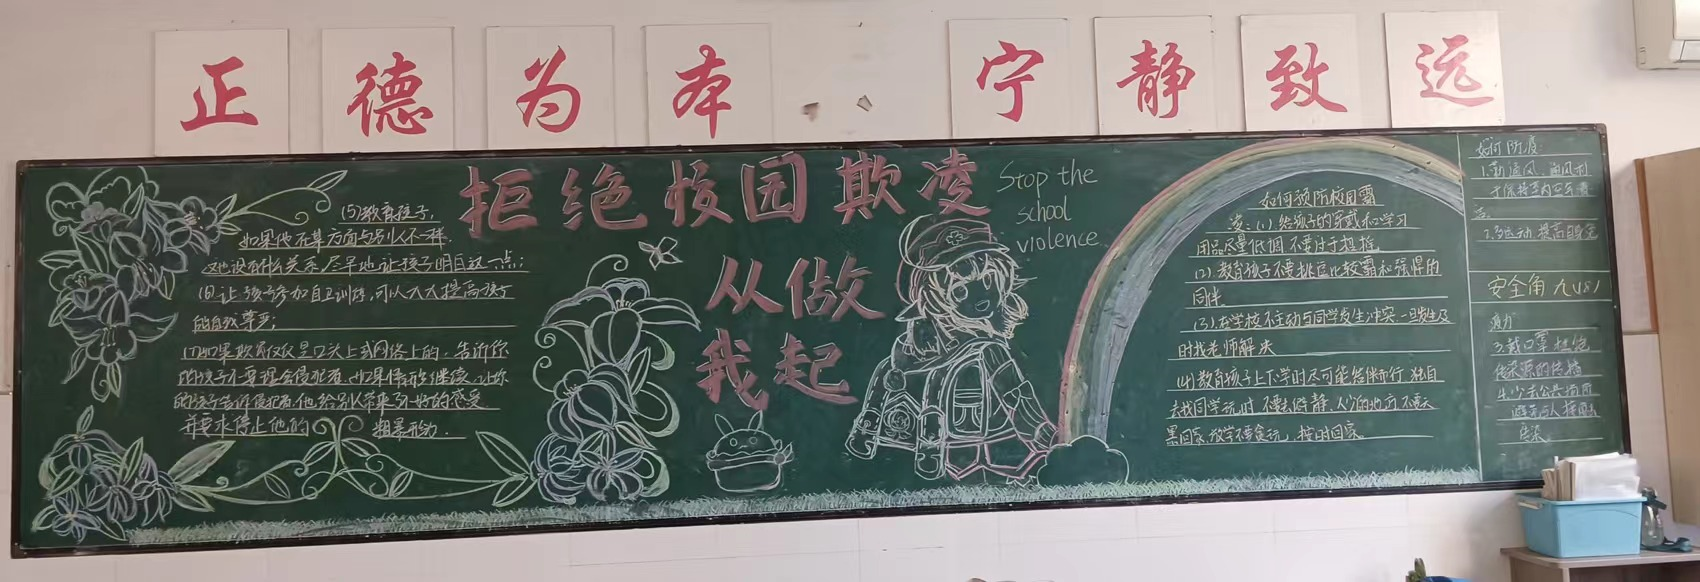 正德为本 宁静致远
拒绝校园欺凌
从做
我起
Stop the
school
violence
(5)教育孩子,
如果他在某方面与别人不一样.
这也没有什么关系,尽早地让孩子明白这一点;
(6)让孩子参加自卫训练,可以大大提高孩子
的自我尊严;
(7)如果欺负仅仅是口头上或网络上的,告诉你
的孩子不要理会侵犯者.如果情形继续,让你
的孩子告诉侵犯者,他给别人带来了不好的感受
并要求停止他的 粗暴行为.
如何预防校园霸
凌:(1)给孩子的穿戴和学习
用品尽量低调,不要过于招摇
(2).教育孩子不要挑逗比较霸和强悍的
同伴
(3).在学校不主动与同学发生冲突,一旦发生及
时找老师解决
(4)教育孩子上下学时尽可能结伴而行,独自
去找同学玩时,不要去僻静、人少的地方,不要天
黑回家,放学不要贪玩,按时回家.
如何防疫
1.勤通风
2.多运动 提高自身免
安全角 九(18)
疫力
3.戴口罩 拒绝
传染源的传播
4.少去公共场所
避免与人接触
传染。